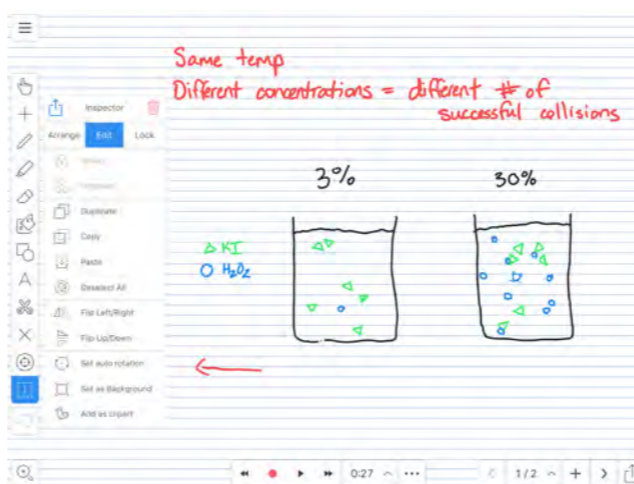 Same temp
Different concentrations = different # of
successful collisions
Inspector
Arrange Edit Lock
3%
30%
Duplicate
Copy
Paste
Deselect All
Flip Left/Right
Flip Up/Down
Set auto rotation
Set as Background
Add as clipart
KI
H₂O₂
A
0:27
1/2